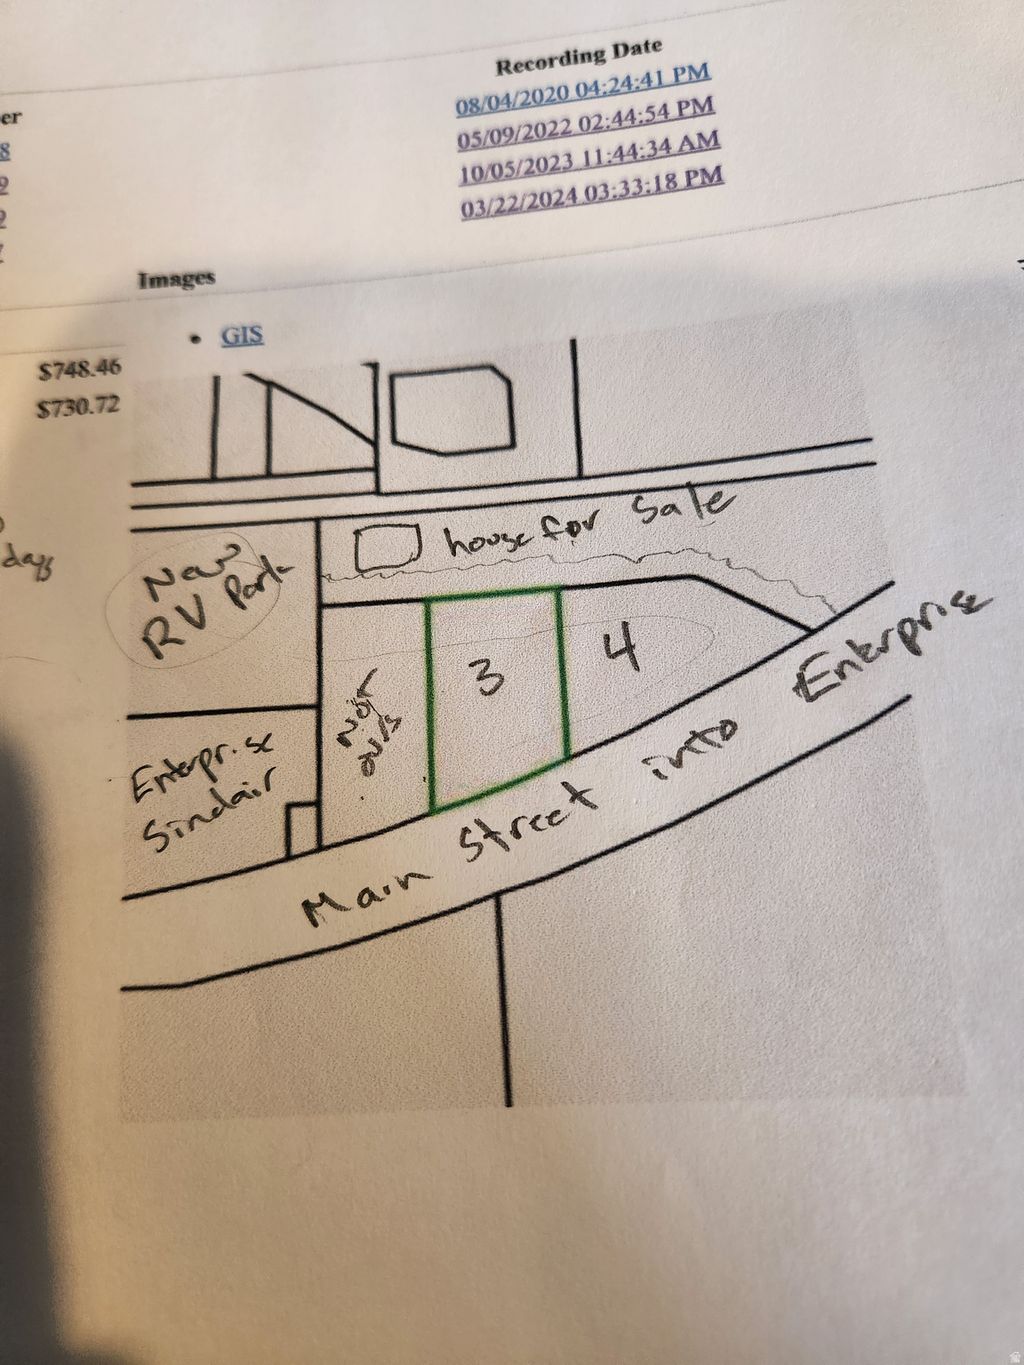 Recording Date
08/04/2020 04:24:41 PM
05/09/2022 02:44:54 PM
10/05/2023 11:44:34 AM
03/22/2024 03:33:18 PM
er
8
9
2
Images
GIS
$748.46
$730.72
days
house for Sale
New
RV Park
3
4
Not
ours
Enterprise
Sinclair
Main Street into Enterprise